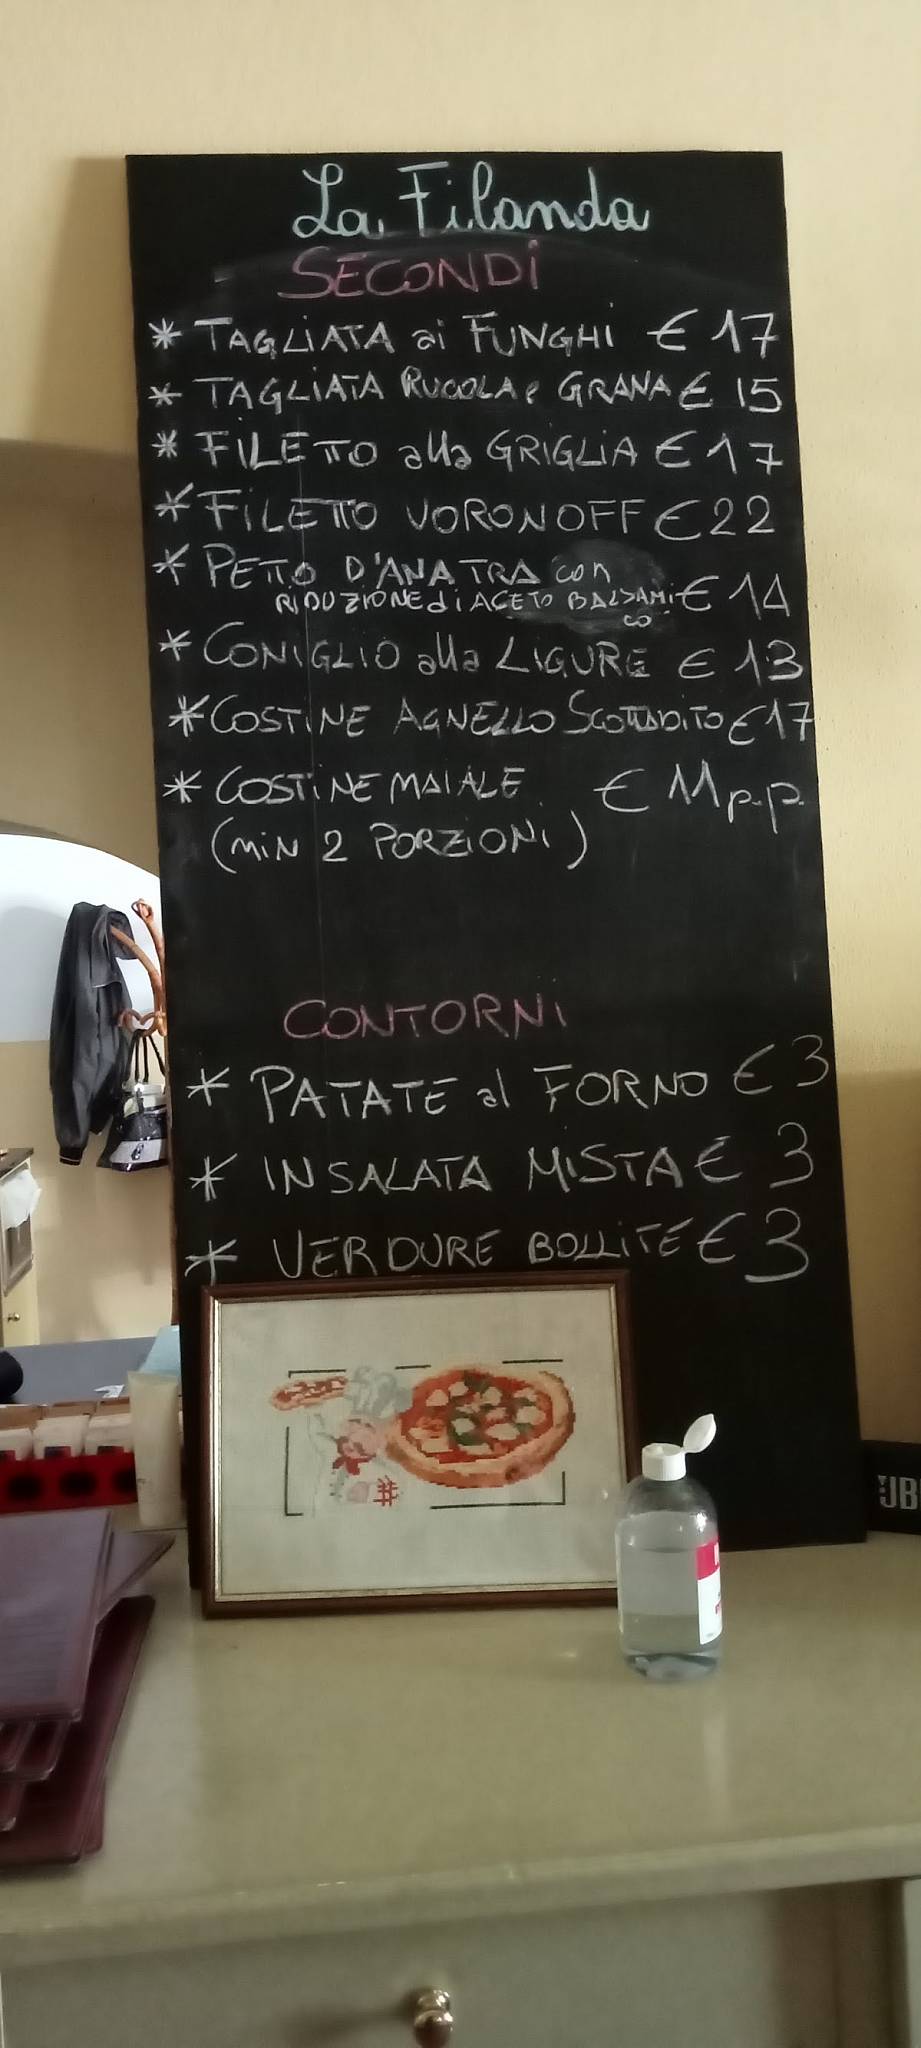 La Filanda
SECONDI
* TAGLIATA ai FUNGHI € 17
* TAGLIATA RUCOLA e GRANA € 15
* FILETTO alla GRIGLIA € 17
* FILETTO VORONOFF € 22
* PETTO D'ANATRA con
RIDUZIONE di ACETO BALSAMI € 14
CO
* CONIGLIO alla LIGURE € 13
* COSTINE AGNELLO SCOTTADITO € 17
* COSTINE MAIALE € 11 p.p.
(MIN 2 PORZIONI)
CONTORNI
* PATATE al FORNO € 3
* INSALATA MISTA € 3
* VERDURE BOLLITE € 3
JB